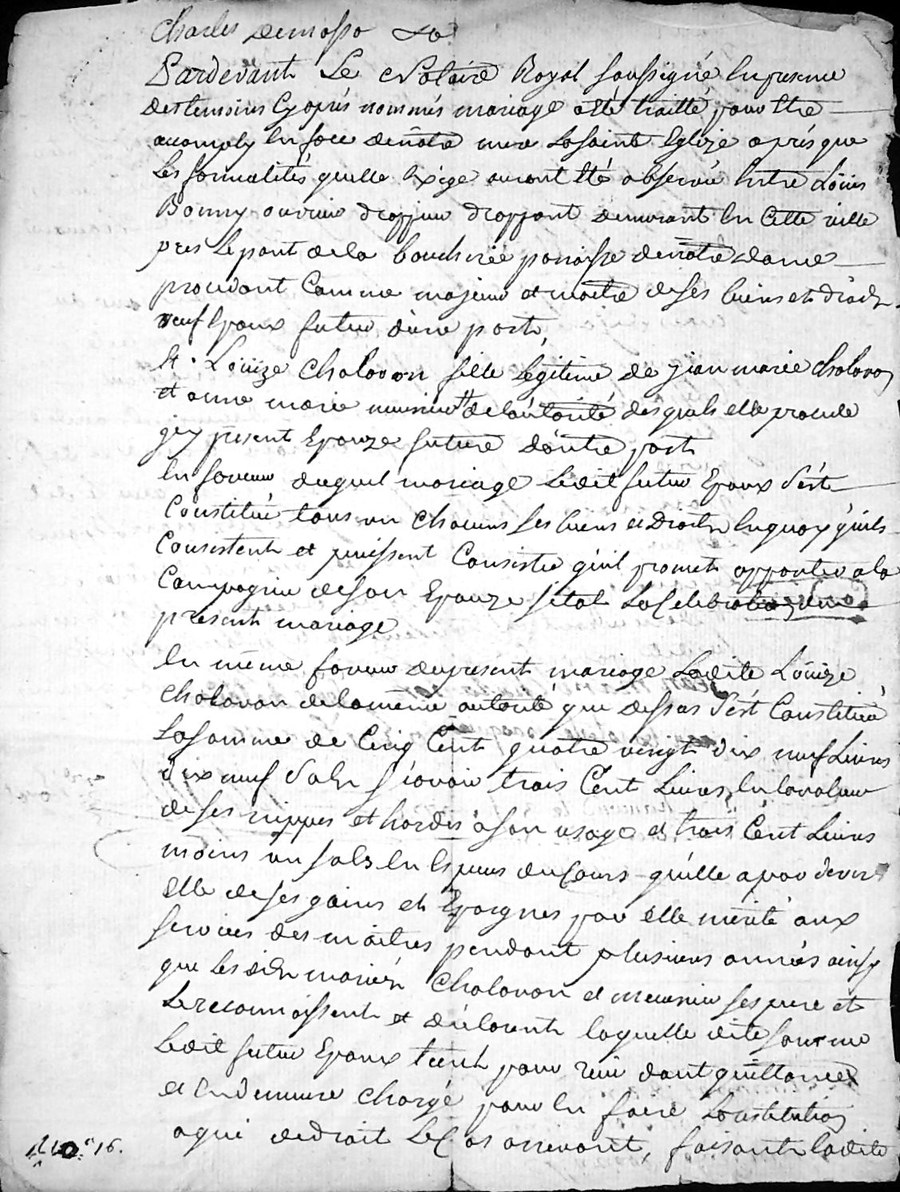 Charles Demosso
Pardevant Le Notaire Royal soussigné En presence
des temoins Cy aprés nommés mariage a été traitté pour être
accomply En face de notre mere La Sainte Eglize aprés que
Les formalités qu'elle Exige auront été observée Entre Loüis
Bonny ouvrier drappier drappant demeurant En Cette ville
prés Le pont de la boucherie paroisse de notre dame
procedant Comme majeur et maitre de ses biens et droits
veuf Epoux futur d'une part
Et Loüize Chalavon fille Legitime de jean marie Chalavon
et anne marie meusnier de L'autorité des quels elle procede
icy present Epouze future d'autre part
En faveur duquel mariage Ledit futur Epoux s'est
Constitué tous un Chacuns ses biens et Droits En quoy qu'ils
Consistent et puissent Consister qu'il promet apporter a la
Compagnie de son Epouze sitot La Celebration du
present mariage
En même faveur du present mariage Ladite Loüize
Chalavon de la même autorité que dessus s'est Constituée
La somme de Cinq Cent quatre vingt dix neuf Livres
dix neuf sols sçavoir trois Cent Livres En la valeur
de ses nippes et hardes a son usage et trois Cent Livres
moins un sols En Especes du Cours qu'elle a par devers
Elle de ses gains et Epargnes par elle merité aux
services des maitres pendant plusieurs années ainsy
que les dits mariés Chalavon et meusnier ses pere et
Le reconnoissent et declarent laquelle dite somme
Ledit futur Epoux tient pour reçu dont quittance
et En demeure Chargé pour En faire Restitution
a qui de droit Le Cas arrivant, faisant Ladite
16.